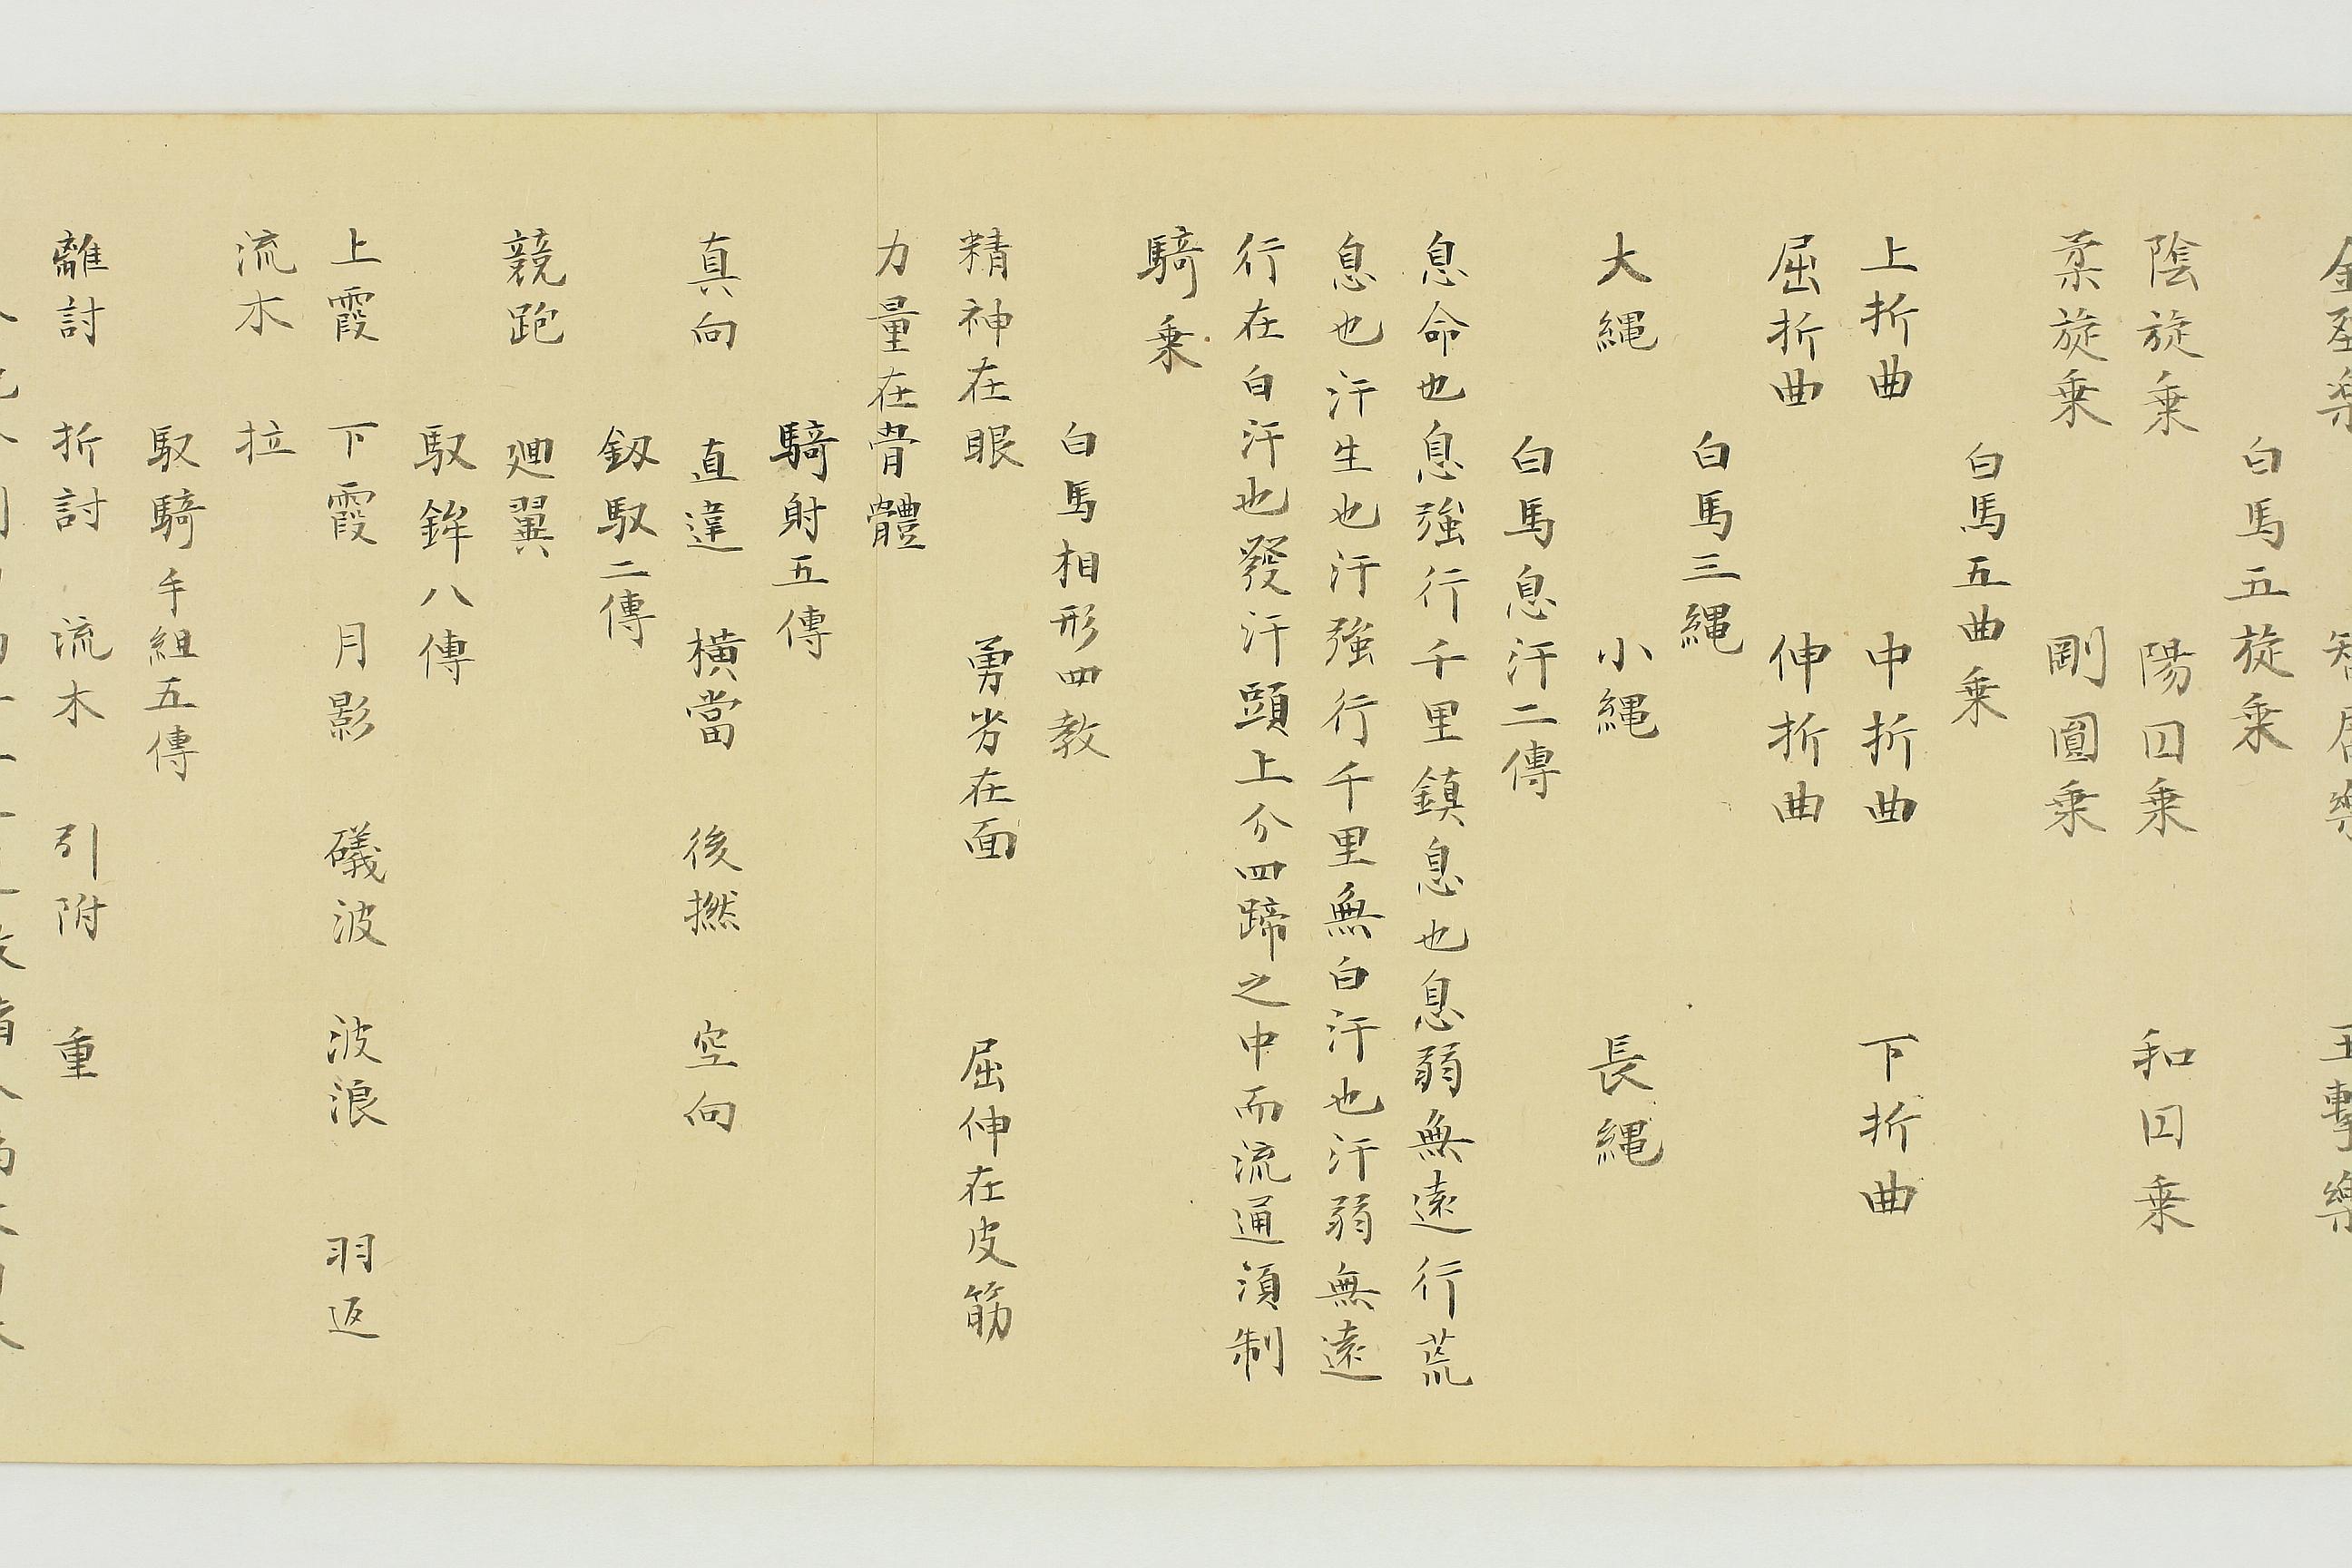 白馬五旋乗
陰旋乗　陽囙乗　和囙乗
柔旋乗　剛圓乗
白馬五曲乗
上折曲　中折曲　下折曲
屈折曲　伸折曲
白馬三縄
大縄　小縄　長縄
白馬息汗二傳
息命也息強行千里鎮息也息弱無遠行荒
息也汗生也汗強行千里無白汗也汗弱無遠
行在白汗也發汗頭上分四蹄之中而流通須制
騎乗
白馬相形四教
精神在眼　勇劣在面　屈伸在皮筋
力量在骨體
騎射五傳
真向　直違　橫當　後撚　空向
釼馭二傳
競跑　廻翼
馭鉾八傳
上霞　下霞　月影　礒波　波浪　羽返
流木　拉
馭騎手組五傳
離討　折討　流木　引附　重